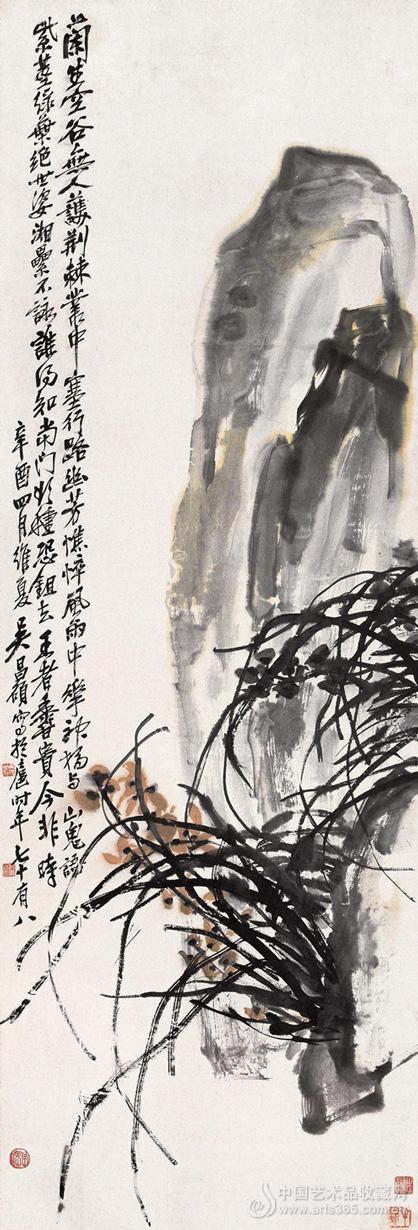 蘭生空谷無人護荊棘叢中塞行路幽芳憔悴風雨中華神獨与山鬼語
紫莖綠葉絕世姿湘纍不詠誰得知當門欲種恐鉏去王者香貴今非時
辛酉四月維夏吳昌碩寫於滬時年七十有八
中国艺术品收藏网
www.arts365.com.cn